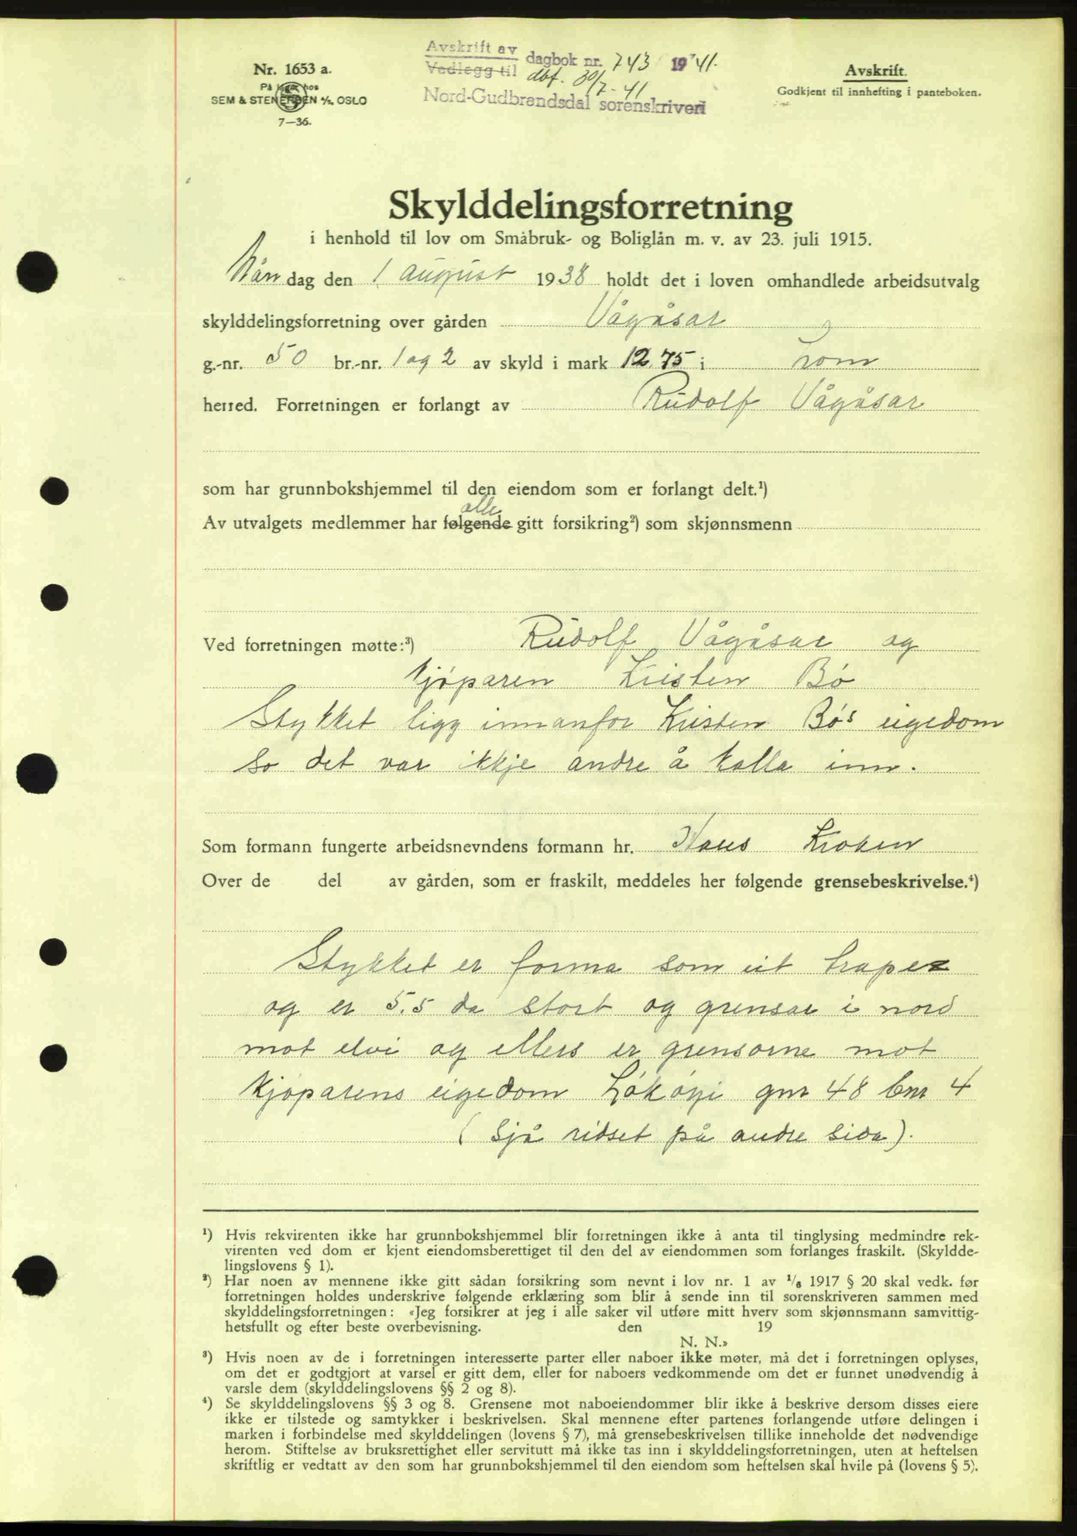 Nr. 1653 a.
På lager hos
SEM & STENERSEN A/S, OSLO
7—36.
Avskrift av
Vedlegg til
dagbok nr. 743 1941.
dbf. 30/7-41
Nord-Gudbrandsdal sorenskriveri
Avskrift.
Godkjent til innhefting i panteboken.
Skylddelingsforretning
i henhold til lov om Småbruk- og Boliglån m. v. av 23. juli 1915.
Måndag den 1 august 1938 holdt det i loven omhandlede arbeidsutvalg
skylddelingsforretning over gården Vågåsar
g.-nr. 50 br.-nr. 1 og 2 av skyld i mark 12,75 i
herred. Forretningen er forlangt av Rudolf Vågåsar
som har grunnbokshjemmel til den eiendom som er forlangt delt.¹)
Av utvalgets medlemmer har følgende alle gitt forsikring²) som skjønnsmenn
Ved forretningen møtte:³) Rudolf Vågåsar og
kjøparen Kristen Bø
Stykket ligg innanfor Kristen Bø's eigedom
so det var ikkje andre å kalla inn.
Som formann fungerte arbeidsnevndens formann hr. Hans Kroken
Over de del av gården, som er fraskilt, meddeles her følgende grensebeskrivelse.⁴)
Stykket er forma som eit trapez
og er 5.5 da stort og grensar i nord
mot elvi og ellers er grensorne mot
kjøparens eigedom Løkøyi gnr 48 bnr 4
(Sjå risset på andre sida).
¹) Hvis rekvirenten ikke har grunnbokshjemmel blir forretningen ikke å anta til tinglysing medmindre rek-
virenten ved dom er kjent eiendomsberettiget til den del av eiendommen som forlanges fraskilt. (Skyldde-
lingslovens § 1).
²) Har noen av mennene ikke gitt sådan forsikring som nevnt i lov nr. 1 av 1/6 1917 § 20 skal vedk. før
forretningen holdes underskrive følgende erklæring som blir å sende inn til sorenskriveren sammen med
skylddelingsforretningen: «Jeg forsikrer at jeg i alle saker vil utføre mitt hverv som skjønnsmann samvittig-
hetsfullt og efter beste overbevisning. den 19
N. N.»
³) Hvis noen av de i forretningen interesserte parter eller naboer ikke møter, må det i forretningen oplyses,
om det er godtgjort at varsel er gitt dem, eller for naboers vedkommende om det er funnet unødvendig å
varsle dem (skylddelingslovens §§ 2 og 8).
⁴) Se skylddelingslovens §§ 3 og 8. Grensene mot naboeiendommer blir ikke å beskrive dersom disses eiere
ikke er tilstede og samtykker i beskrivelsen. Skal mennene efter partenes forlangende utføre delingen i
marken i forbindelse med skylddelingen (lovens § 7), må grensebeskrivelsen tillike inneholde det nødvendige
herom. Stiftelse av bruksrettighet eller servitutt må ikke tas inn i skylddelingsforretningen, uten at heftelsen
skriftlig er vedtatt av den som har grunnbokshjemmel til den eiendom som heftelsen skal hvile på (lovens § 5).